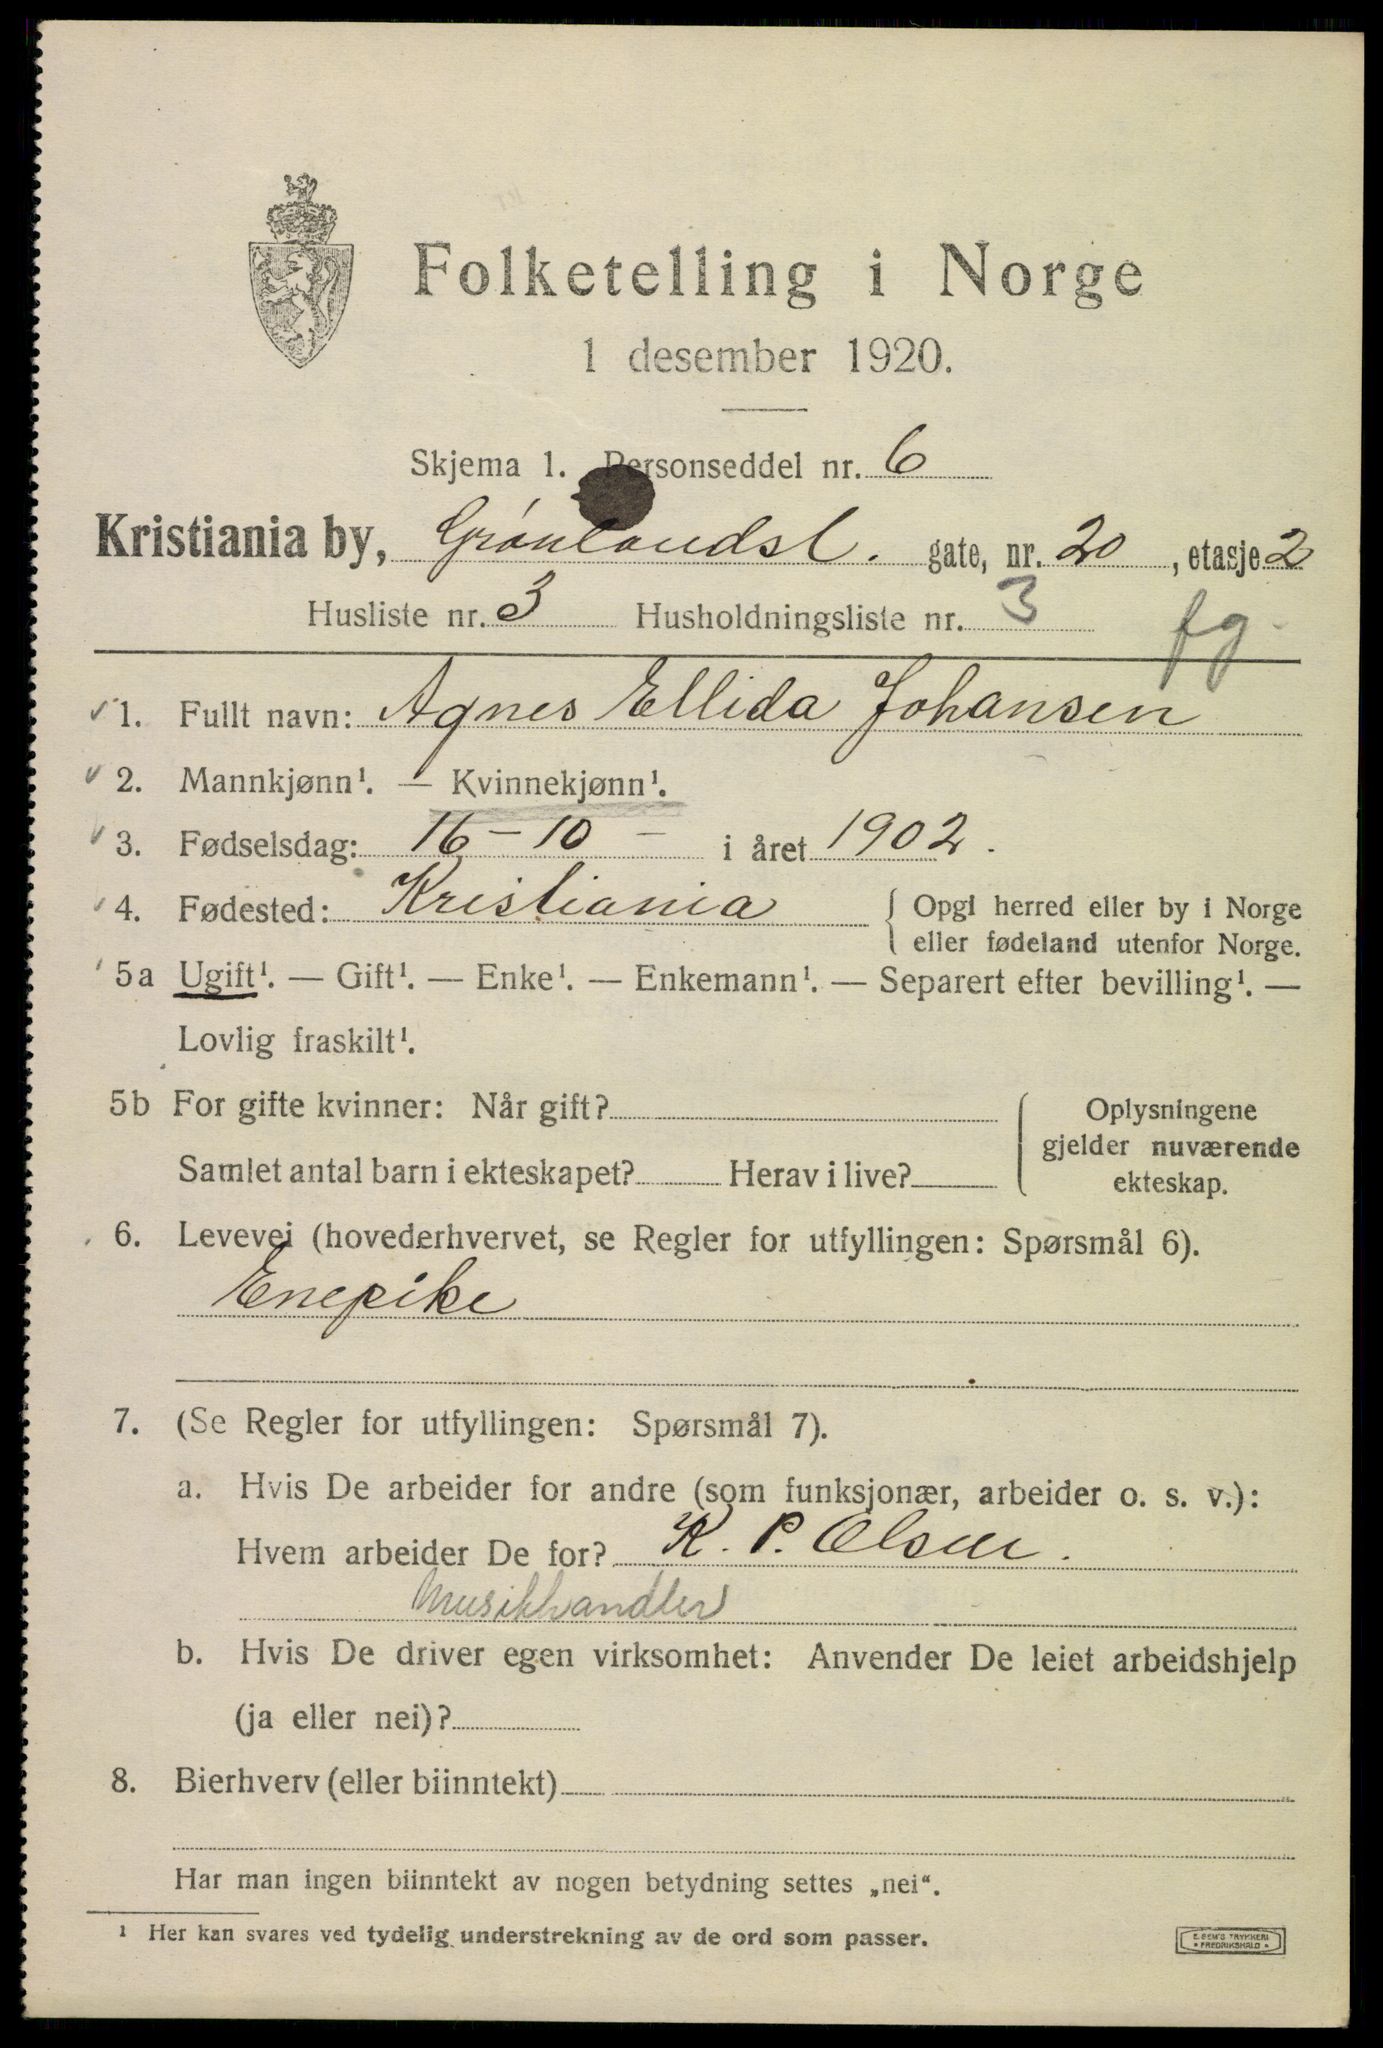 Folketelling i Norge
1 desember 1920.
Skjema 1. Personseddel nr. 6
Kristiania by, Grønlandsl. gate, nr. 20, etasje 2
Husliste nr. 3 Husholdningsliste nr. 3 fg.
1. Fullt navn: Agnes Ellida Johansen
2. Mannkjønn¹. — Kvinnekjønn¹.
3. Fødselsdag: 16 – 10 – i året 1902.
4. Fødested: Kristiania { Opgi herred eller by i Norge
eller fødeland utenfor Norge.
5a Ugift¹. — Gift¹. — Enke¹. — Enkemann¹. — Separert efter bevilling¹. —
Lovlig fraskilt¹.
5b For gifte kvinner: Når gift? Oplysningene
gjelder nuværende
Samlet antal barn i ekteskapet? Herav i live? ekteskap.
6. Levevei (hovederhvervet, se Regler for utfyllingen: Spørsmål 6).
Enepike
7. (Se Regler for utfyllingen: Spørsmål 7).
a. Hvis De arbeider for andre (som funksjonær, arbeider o. s. v.):
Hvem arbeider De for? K. P. Olsen.
Musikhandler
b. Hvis De driver egen virksomhet: Anvender De leiet arbeidshjelp
(ja eller nei)?
8. Bierhverv (eller biinntekt)
Har man ingen biinntekt av nogen betydning settes „nei“.
¹ Her kan svares ved tydelig understrekning av de ord som passer.
E. SEM'S TRYKKERI
• FREDRIKSHALD •